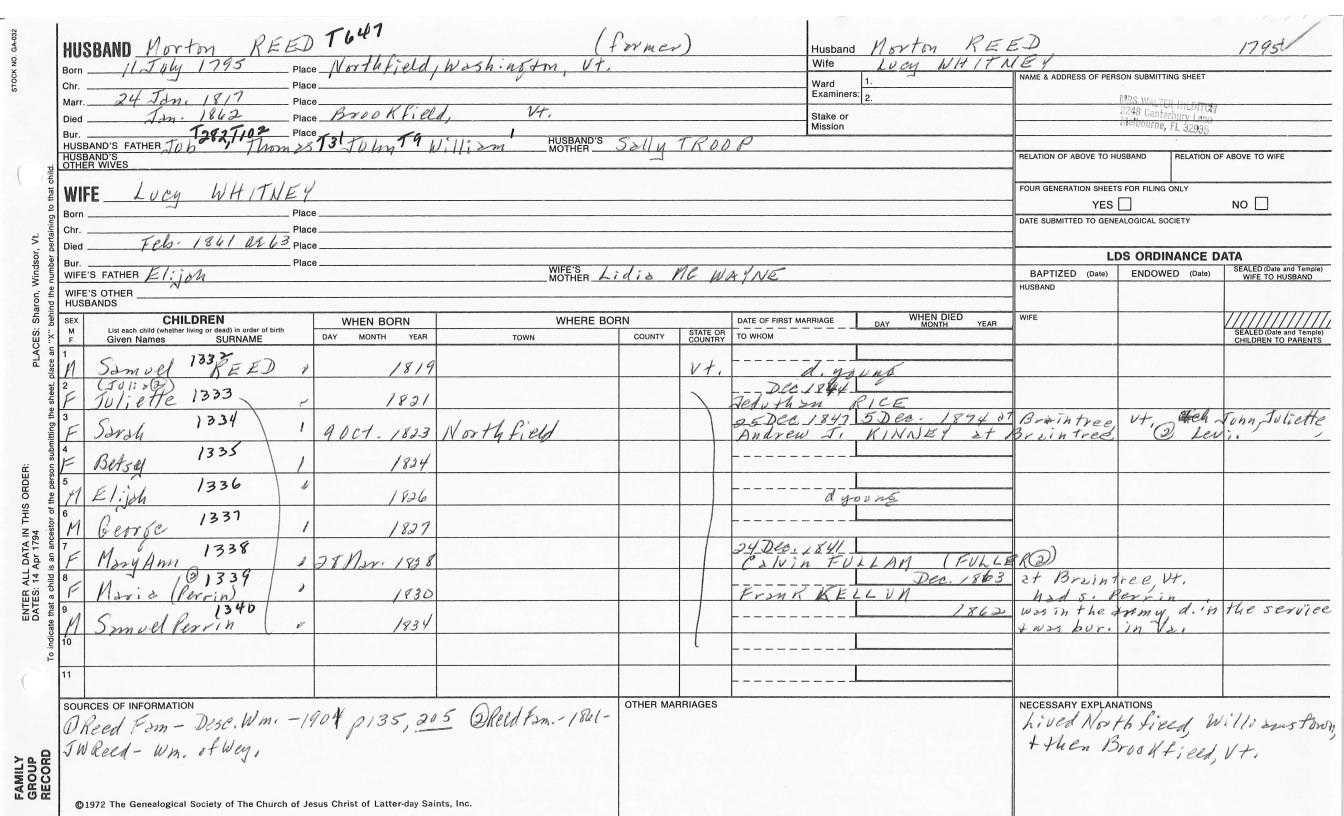 STOCK NO. GA-032
PLACES: Sharon, Windsor, Vt.
ENTER ALL DATA IN THIS ORDER:
DATES: 14 Apr 1794
To indicate that a child is an ancestor of the person submitting the sheet, place an "X" behind the number pertaining to that child.
FAMILY GROUP RECORD
HUSBAND Morton REED T647 (former)
Born 11 July 1795 Place Northfield, Washington, Vt.
Chr. Place
Marr. 24 Jan. 1817 Place
Died Jan. 1862 Place Brookfield, Vt.
Bur. Place
HUSBAND'S FATHER Job T282, T102 Thomas T31 John T9 William 1 HUSBAND'S MOTHER Sally TROOP
HUSBAND'S OTHER WIVES
WIFE Lucy WHITNEY
Born Place
Chr. Place
Died Feb. 1861 or 63 Place
Bur. Place
WIFE'S FATHER Elijah WIFE'S MOTHER Lidia Mc WAYNE
WIFE'S OTHER HUSBANDS
Husband Morton REED 1795
Wife Lucy WHITNEY
Ward Examiners: 1.
2.
Stake or Mission
NAME & ADDRESS OF PERSON SUBMITTING SHEET
MRS WALTER
2248 Canterbury Lane
Melbourne, FL 32935
RELATION OF ABOVE TO HUSBAND RELATION OF ABOVE TO WIFE
FOUR GENERATION SHEETS FOR FILING ONLY
YES NO
DATE SUBMITTED TO GENEALOGICAL SOCIETY
LDS ORDINANCE DATA
BAPTIZED (Date) ENDOWED (Date) SEALED (Date and Temple) WIFE TO HUSBAND
HUSBAND
WIFE
SEALED (Date and Temple) CHILDREN TO PARENTS
SEX M F CHILDREN WHEN BORN WHERE BORN DATE OF FIRST MARRIAGE WHEN DIED
List each child (whether living or dead) in order of birth DAY MONTH YEAR
Given Names SURNAME DAY MONTH YEAR TOWN COUNTY STATE OR COUNTRY TO WHOM
1 M Samuel 1332 REED 1819 Vt. d. young
2 (Julia ②) Dec. 1844
F Juliette 1333 1821 Jeduthan RICE
3 1334 25 Dec. 1847 5 Dec. 1874 at Braintree, Vt. John, Juliette
F Sarah 9 Oct. 1823 Northfield Andrew J. KINNEY at Braintree ② Levi.
4 F Betsy 1335 1824
5 M Elijah 1336 1826 d young
6 M George 1337 1827
7 1338 24 Dec. 1841
F Mary Ann 28 Mar. 1828 Calvin FULLAM (FULLER ②)
8 ② 1339 Dec. 1863 at Braintree, Vt.
F Maria (Perrin) 1830 Frank KELLUM had s. Perrin
9 1340 1862 was in the army d. in the service
M Samuel Perrin 1834 + was bur. in Va.
10
11
SOURCES OF INFORMATION
① Reed Fam - Desc. Wm. - 1901 p135, 205 ② Reed Fam. - 1861 -
JW Reed - Wm. of Wey.
OTHER MARRIAGES
NECESSARY EXPLANATIONS
Lived Northfield, Williamstown,
+ then Brookfield, Vt.
©1972 The Genealogical Society of The Church of Jesus Christ of Latter-day Saints, Inc.